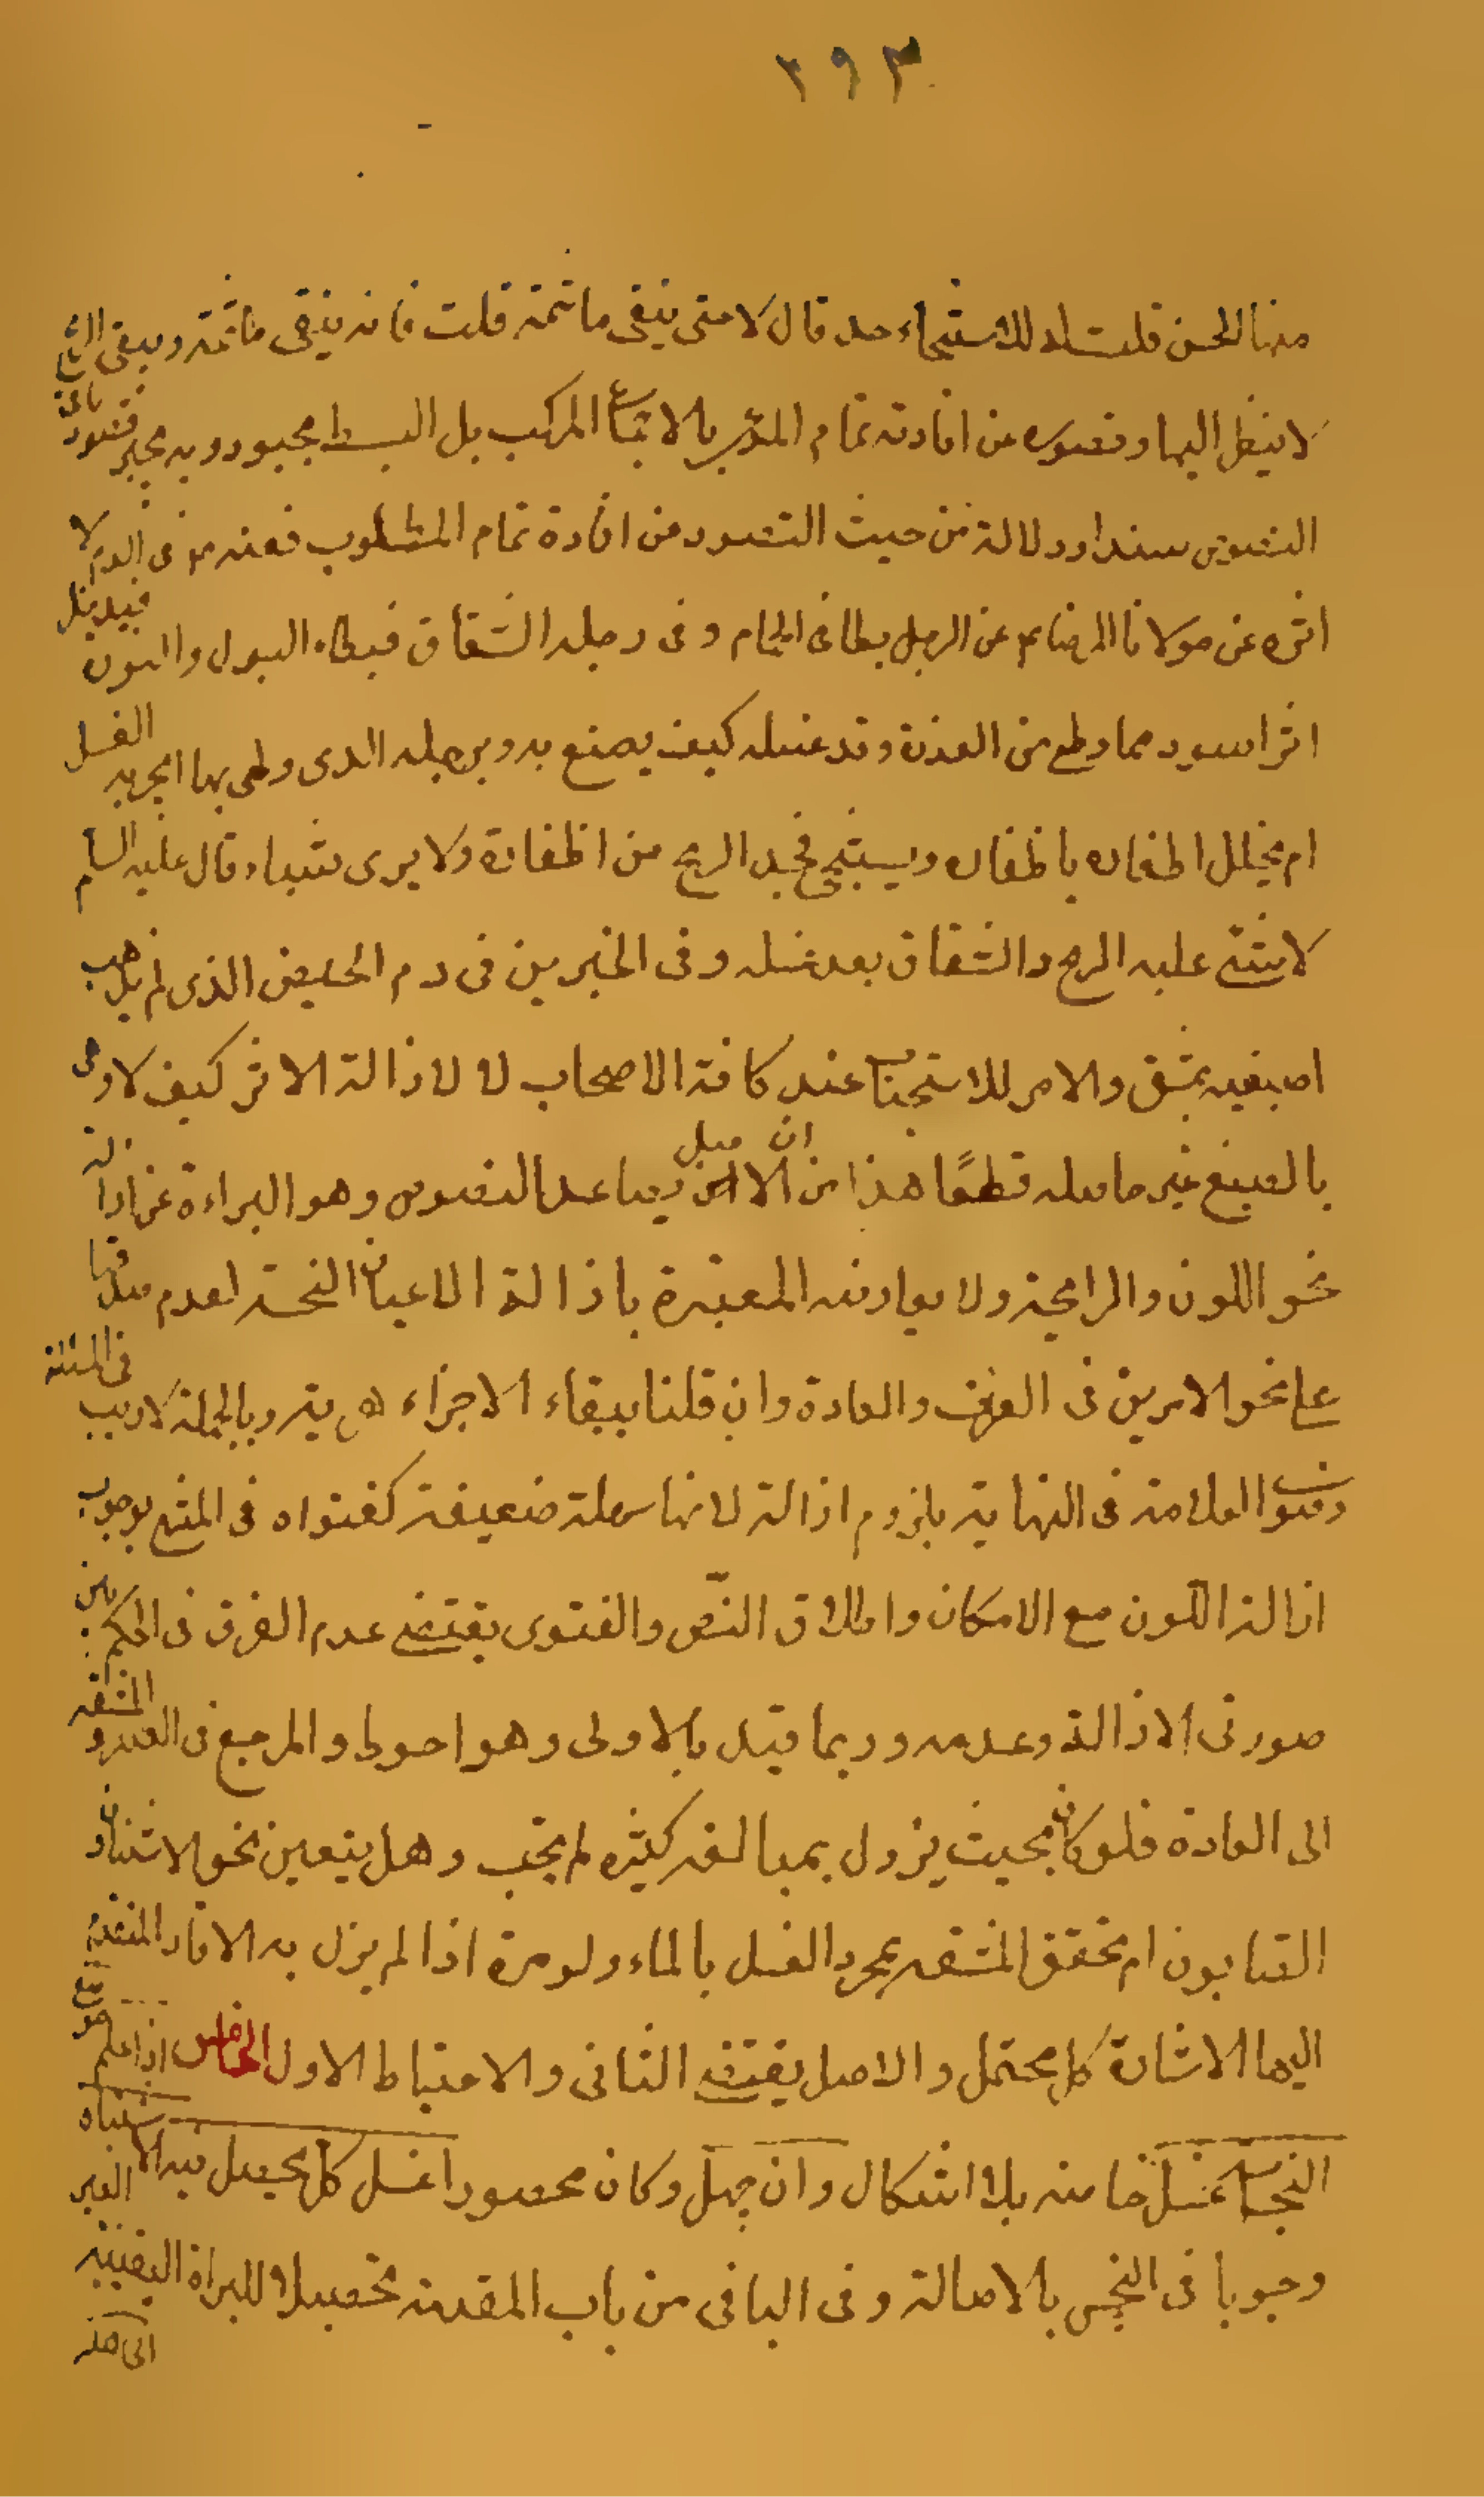 ٢٩٣
منها الحسن قلت له للاستنجاء حد قال لا حتى ينقى ما ثمة قلت فانه ينقى ما ثمة ويبقى الريح قال الريح
لا ينظر اليها وقصوره عن افادته تمام المدعى بالاجماع المركب بل البسيط مجبور وبه يجبر قصور باقي
النصوص سندا ودلالة من حيث القصور من افادة تمام المطلوب فعنه في الدم لا
اثره عن مولانا الرضا ع عن الرجل يطأ في الحمام وفي رجله الشقاق فيطاء البول والنورة فيدخل
اثر اسود مما وطئ من القذر وقد غسله كيف يصنع به وبرجله الذي وطى بها ايجزيه الغسل
ام يخلل اظفاره باظفاره ويستنجى فيجد الريح من اظفاره ولا يرى شيئا فقال عليه السلام
لا شئ عليه الريح والشقاق بعد غسله وفي الخبرين في دم الحيض الذي لم يذهب
اصبغيه بمشق والامر للاستحباب عند كافة الاصحاب لا لازالة الاثر كيف لا وهى
بالصبغ غير حاصله قطعًا هذا مع ان الاصل يساعد النصوص وهو البراءة عن ازالة
نحو اللون والرايحة ولا يعارضه المعتبرة بازالة الاعيان النجسة لعدم صدقها
على نحو الامرين في العرف والعادة وان قلنا ببقاء الاجزاء وبالجملة لا ريب في المسئلة
وفتوى العلامة في النهاية بلزوم ازالة لانها سهلة ضعيفة كفتواه في المنتهى بوجوب
ازالة اللون مع الامكان واطلاق النّص والفتوى يقتضى عدم الفرق في الحكم بين
صورتى الازالة وعدمه وربما قيد بالاولى وهو احوط والمرجع في العسر والمشقه
الى العادة فلو كان بحيث يزول بمبالغه كثيره لم يجب وهل يتعين نحو الاشنان و
الصابون ام تحقق المشقه بمجرد الغسل بالماء ولو مرة اذا لم يزل به الاثار المتقدم
اليها الاشارة كل محتمل والاصل يقتضى الثانى والاحتياط الاول الخامس اذا علم موضع
النجاسة غسل خاصه بلا اشكال وان جهل وكان محصورا غسل كل يحصل فيه الاشتباه
وجوبا في النجس بالاصالة وفى الباقى من باب المقدمة تحصيلا للبراءة اليقينيه